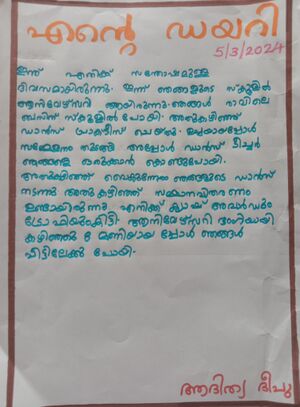 എന്റെ ഡയറി
5/3/2024
ഇന്ന് എനിക്ക് സന്തോഷമുള്ള
ദിവസമായിരുന്നു. ഇന്ന് ഞങ്ങളുടെ സ്കൂളിൽ
ആനിവേഴ്സറി ആയിരുന്നു. ഞങ്ങൾ രാവിലെ
സ്കൂളിൽ പോയി. അതുകഴിഞ്ഞ്
ഡാൻസ് പ്രാക്ടീസ് ചെയ്തു. ഉച്ചയായപ്പോൾ
സമ്മേളനം തുടങ്ങി അപ്പോൾ ഡാൻസ് ടീച്ചർ
ഞങ്ങളെ ഒരുക്കാൻ കൊണ്ടുപോയി.
അതുകഴിഞ്ഞ് വൈകുന്നേരം ഞങ്ങളുടെ ഡാൻസ്
നടന്നു അതു കഴിഞ്ഞ് സമ്മാനവിതരണം
ഉണ്ടായിരുന്നു. എനിക്ക് ക്ലാസ് അവാർഡും
ട്രോഫിയുംകിട്ടി. ആനിവേഴ്സറി ഭംഗിയായി
കഴിഞ്ഞു 8 മണിയായപ്പോൾ ഞങ്ങൾ
വീട്ടിലേക്ക് പോയി.
ആദിത്യ ദീപു